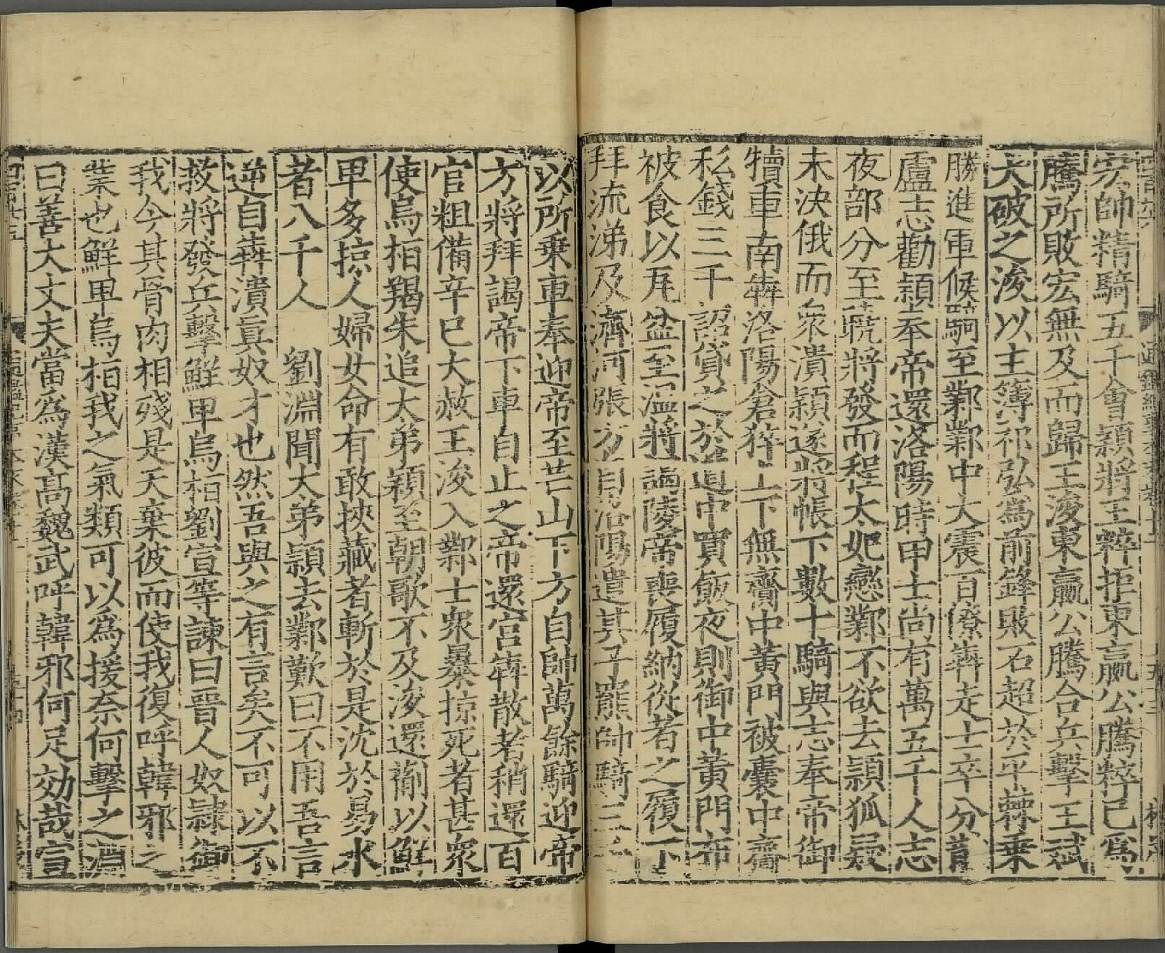 宏帥精騎五千會穎將王粹拒東嬴公騰粹已爲
騰所敗宏無及而歸王浚東嬴公騰合兵擊王斌
大破之浚以主簿祁弘爲前鋒敗石超於平棘乗
勝進軍候騎至鄴鄴中大震百僚犇走士卒分散
盧志勸穎奉帝還洛陽時甲士尚有萬五千人志
夜部分至曉將發而程太妃戀鄴不欲去穎狐疑
未決俄而衆潰穎遂將帳下數十騎與志奉帝御
犢車南犇洛陽倉猝上下無齎中黄門被囊中齎
私錢三千詔貸之於道中買飯夜則御中黄門布
被食以瓦盆至温將謁陵帝喪履納從者之履下
拜流涕及濟河張方自洛陽遣其子羆帥騎三千
以所乗車奉迎帝至芒山下方自帥萬餘騎迎帝
方將拜謁帝下車自止之帝還宫犇散者稍還百
官粗備辛巳大赦王浚入鄴士衆暴掠死者甚衆
使烏桓羯朱追太弟穎至朝歌不及浚還薊以鮮
卑多掠人婦女命有敢挾藏者斬於是沈於易水
者八千人　劉淵聞太弟穎去鄴歎曰不用吾言
逆自犇潰真奴才也然吾與之有言矣不可以不
救將發兵擊鮮卑烏桓劉宣等諫曰晉人奴隸御
我今其骨肉相殘是天棄彼而使我復呼韓邪之
業也鮮卑烏桓我之氣類可以爲援奈何擊之淵
曰善大丈夫當爲漢高魏武呼韓邪何足効哉宣